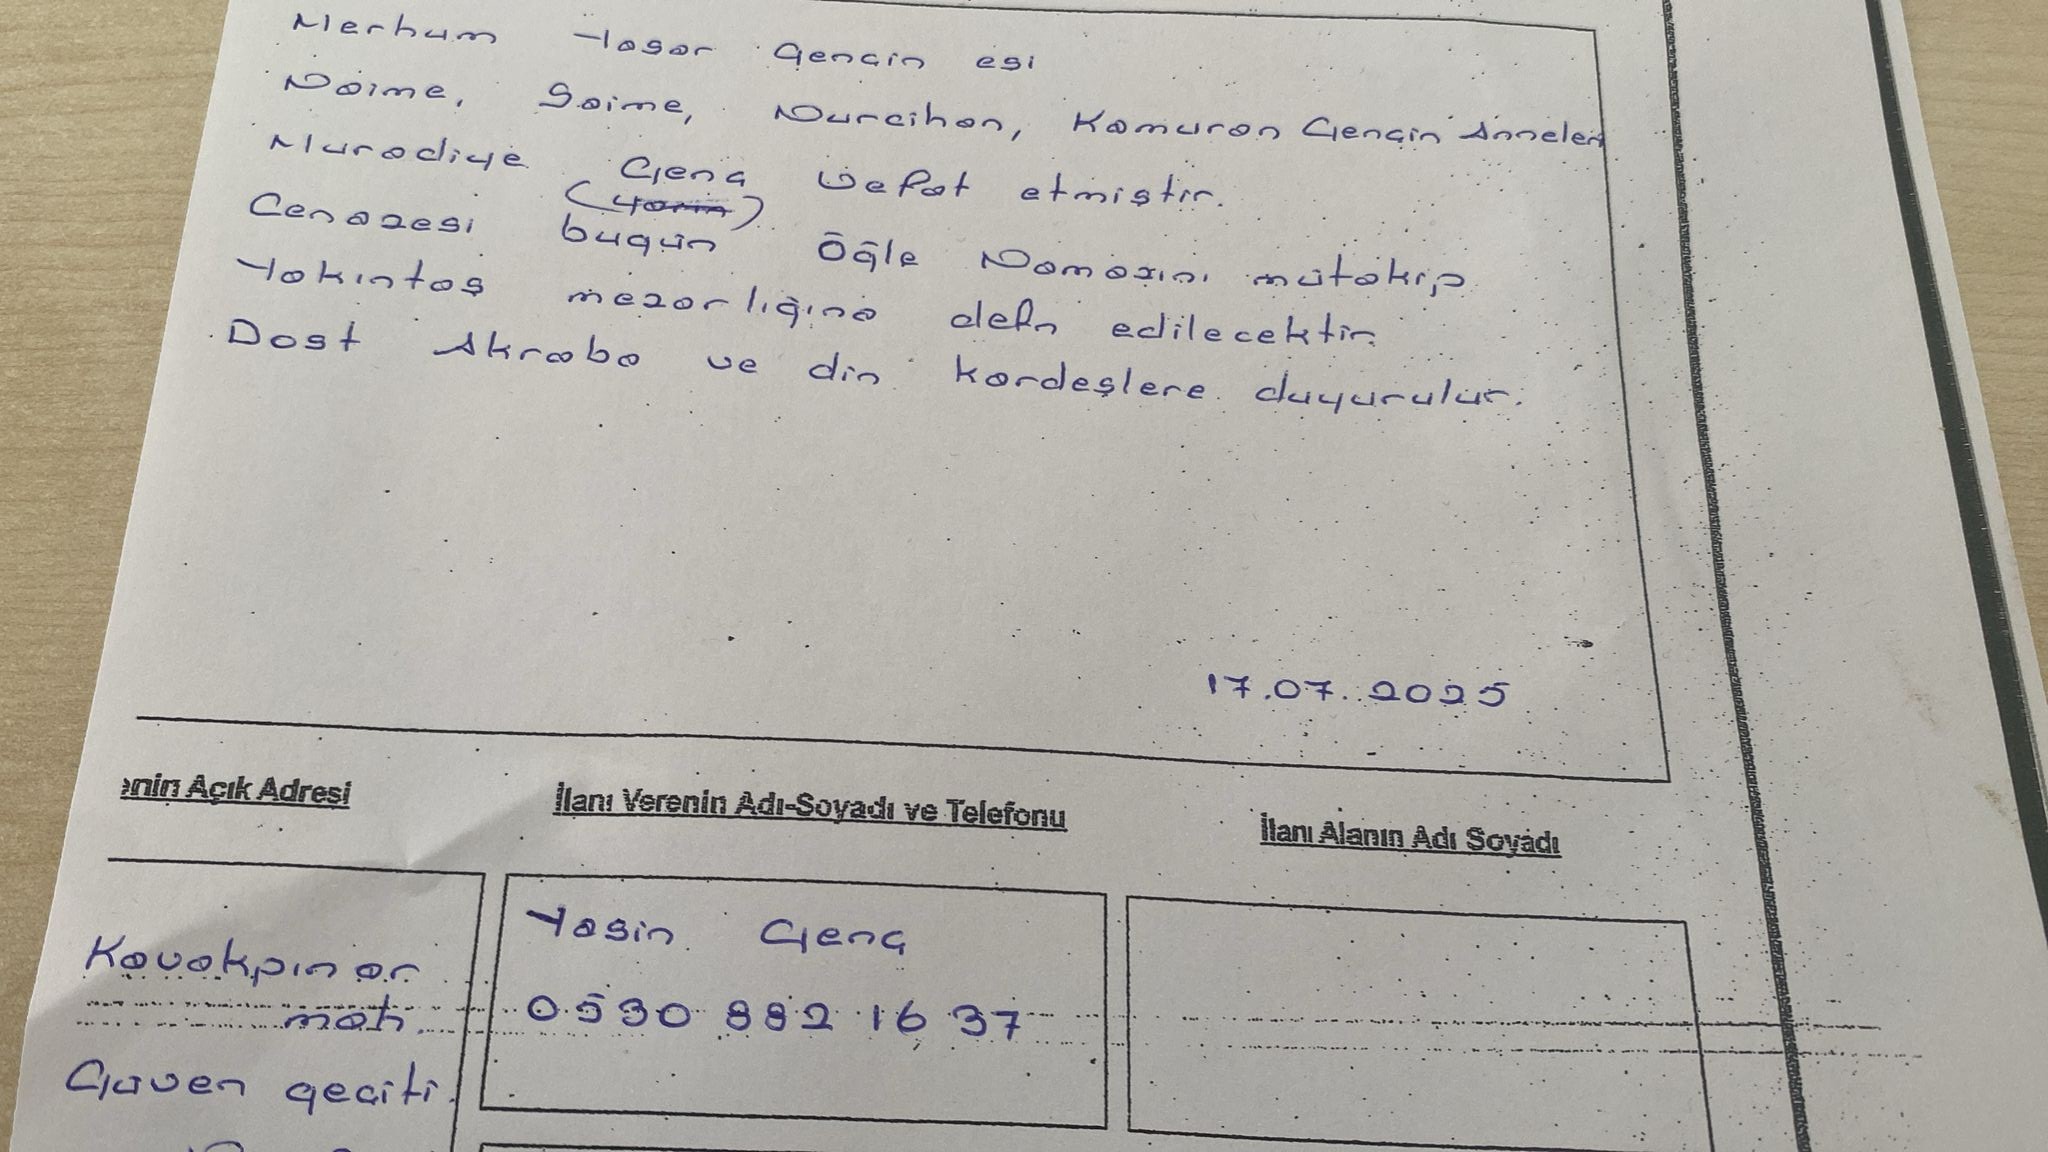 Merhum Yaşar Gençin eşi
Naime, Saime, Nurcihan, Kamuran Gençin Anneleri
Muradiye Genç Vefat etmiştir.
(yarın)
Cenazesi bugün Öğle Namazını mütakip
Yakıntaş mezarlığına defn edilecektir.
Dost Akraba ve din kardeşlere duyurulur.
17.07.2025
enin Açık Adresi
İlanı Verenin Adı-Soyadı ve Telefonu
İlanı Alanın Adı Soyadı
Yasin Genç
0530 882 16 37
Kavakpınar
mah.
Güven geçiti